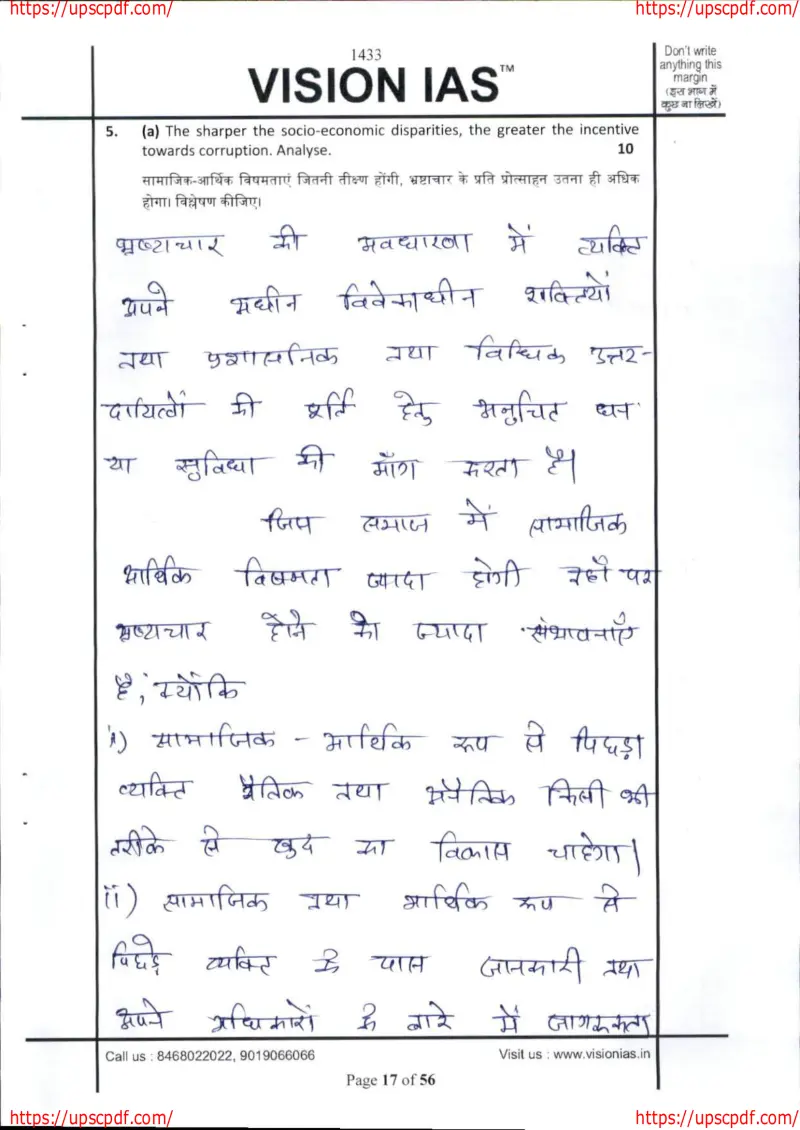 https://upscpdf.com/ https://upscpdf.com/
1433
VISION IAS™
Don't write
anything this
margin
(इस भाग में
कुछ ना लिखें)
5. (a) The sharper the socio-economic disparities, the greater the incentive
towards corruption. Analyse. 10
सामाजिक-आर्थिक विषमताएं जितनी तीक्ष्ण होंगी, भ्रष्टाचार के प्रति प्रोत्साहन उतना ही अधिक
होगा। विश्लेषण कीजिए।
भ्रष्टाचार की अवधारणा में व्यक्ति
अपने अधीन विवेकाधीन शक्तियों
तथा प्रशासनिक तथा विधिक उत्तर-
दायित्वों की पूर्ति हेतु अनुचित धन
या सुविधा की माँग करता है।
जिस समाज में सामाजिक
आर्थिक विषमता ज्यादा होगी वहाँ पर
भ्रष्टाचार होने की ज्यादा संभावनाएँ
है, क्योंकि
i) सामाजिक - आर्थिक रूप से पिछड़ा
व्यक्ति नैतिक तथा अनैतिक किसी भी
तरीके से खुद का विकास चाहेगा।
ii) सामाजिक तथा आर्थिक रूप से
पिछड़े व्यक्ति के पास जानकारी तथा
अपने अधिकारों के बारे में जागरूकता
Call us : 8468022022, 9019066066 Visit us : www.visionias.in
Page 17 of 56
https://upscpdf.com/ https://upscpdf.com/